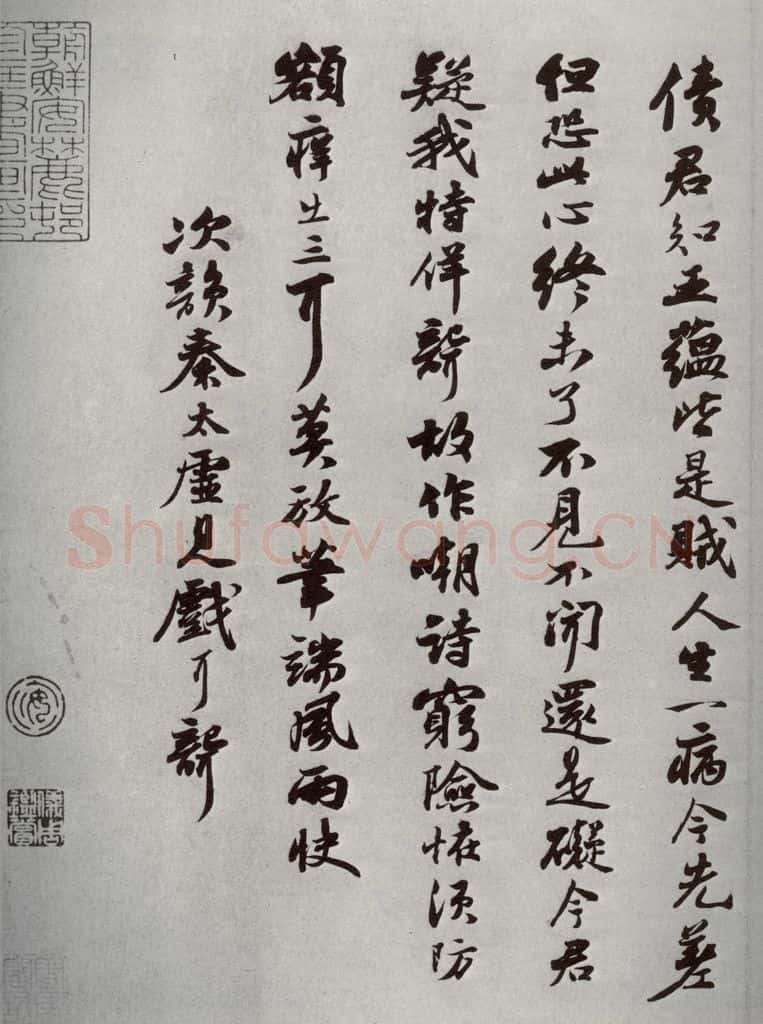 債君知五蘊皆是賊人生一病今先差
但恐此心終未了不見不聞還是礙今君
疑我特佯聾故作嘲詩窮險恠須防
額痒出三耳莫放筆端風雨快
次韻秦太虛見戲耳聾
朝鮮安麓邨
Shufawang.CN